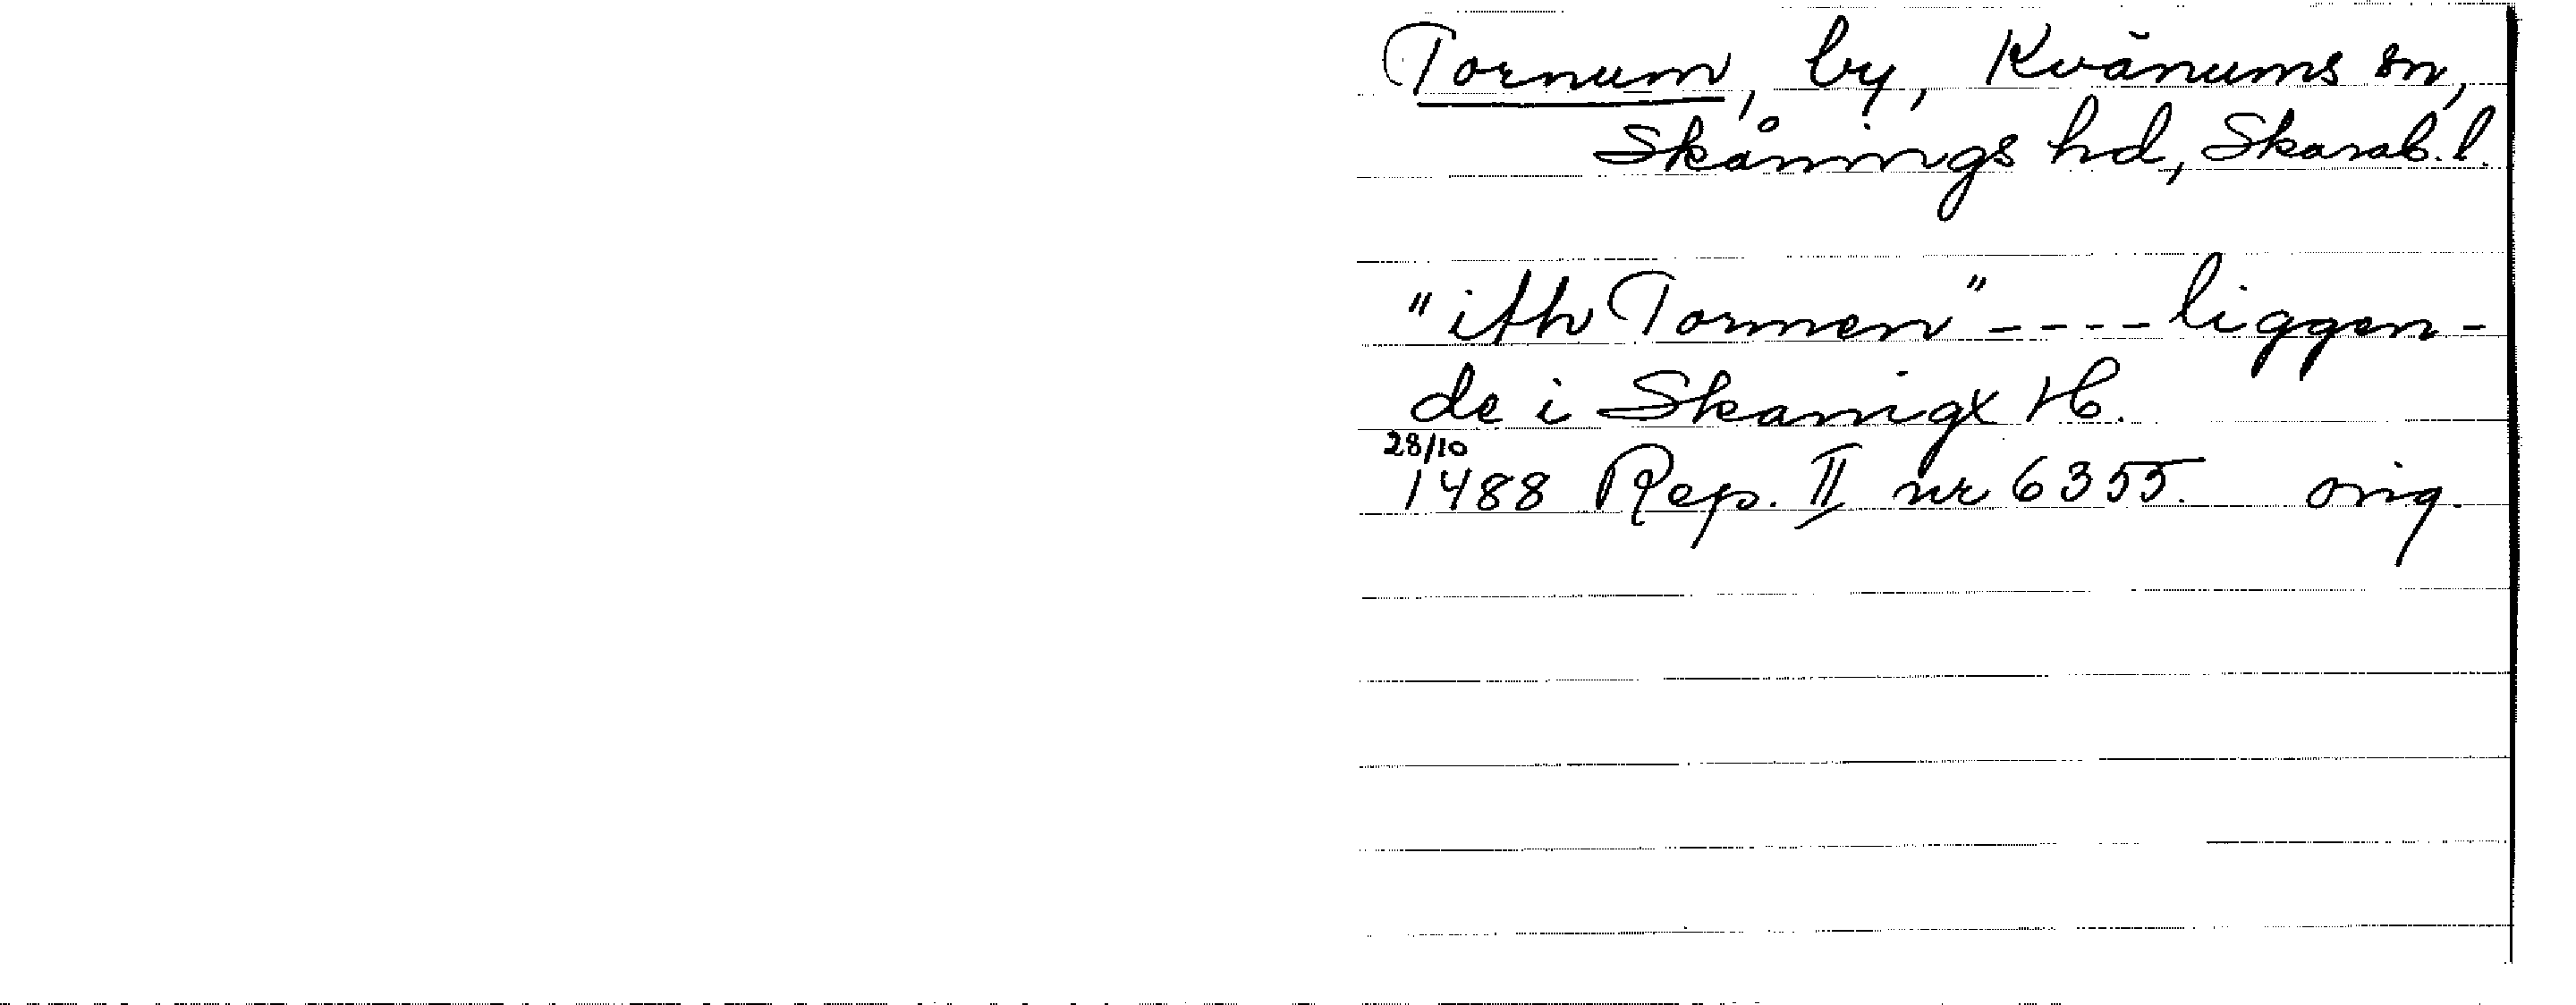 Tornum, by, Kvänums sn,
Skånings hd, Skarab. l.
"ith Tormen" ---- liggen-
de i Skanigx H.
28/10
1488 Rep. II nr 6355. orig.